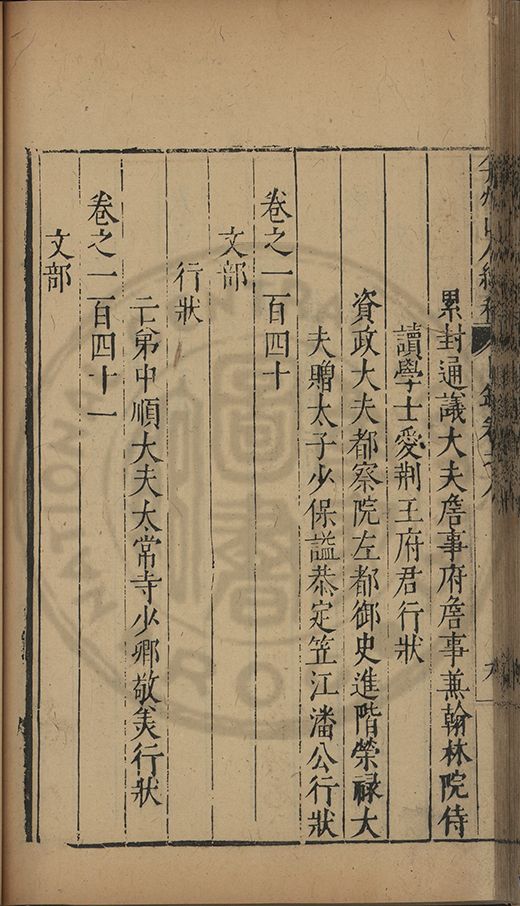 累封通議大夫詹事府詹事兼翰林院侍
讀學士愛荆王府君行狀
資政大夫都察院左都御史進階榮祿大
夫贈太子少保謚恭定笠江潘公行狀
卷之一百四十
文部
行狀
亡弟中順大夫太常寺少卿敬美行狀
卷之一百四十一
文部